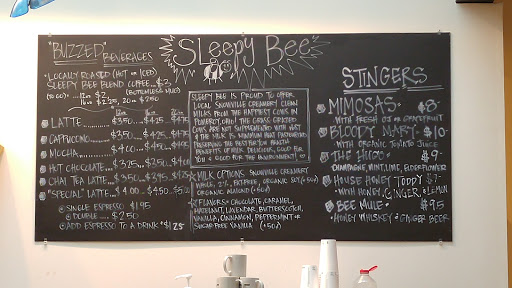 "BUZZED" BEVERAGES
LOCALLY ROASTED (HOT or ICED)
SLEEPY BEE BLEND COFFEE... $2
(BOTTOMLESS MUG)
(TO GO) 12oz $2
16oz $2.25, 20oz $2.50
LATTE
CAPPUCCINO
MOCHA
HOT CHOCOLATE
CHAI TEA LATTE
"SPECIAL" LATTE
SINGLE ESPRESSO $1.95
DOUBLE $2.50
ADD ESPRESSO TO A DRINK +$1.25
SLeepy Bee
SLEEPY BEE IS PROUD TO OFFER
LOCAL SNOWVILLE CREAMERY CLEAN
MILKS FROM THE HAPPIEST COWS IN
POMEROY, OHIO! THE GRASS GRAZED
COWS ARE NOT SUPPLEMENTED WITH rBST
& THE MILK IS MINIMUM HEAT PASTEURIZED
PRESERVING THE BEST FOR YOU HEALTH
BENEFITS OF MILK. DELICIOUS, GOOD FOR
YOU & GOOD FOR THE ENVIRONMENT!
MILK OPTIONS: SNOWVILLE CREAMERY
WHOLE, 2%, FAT FREE, ORGANIC SOY (+50¢)
ORGANIC ALMOND (+60¢)
FLAVORS: CHOCOLATE, CARAMEL,
HAZELNUT, LAVENDAR, BUTTERSCOTCH,
VANILLA, CINNAMON, PEPPERMINT or
SUGAR-FREE VANILLA (+50¢)
STINGERS
MIMOSAS $8
WITH FRESH OJ or GRAPEFRUIT
BLOODY MARY $10
WITH ORGANIC TOMATO JUICE
THE HUGO $9
CHAMPAGNE, MINT, LIME, ELDERFLOWER
HOUSE HONEY TODDY $7
WITH HONEY, GINGER & LEMON
BEE MULE $9.5
HONEY WHISKEY & GINGER BEER